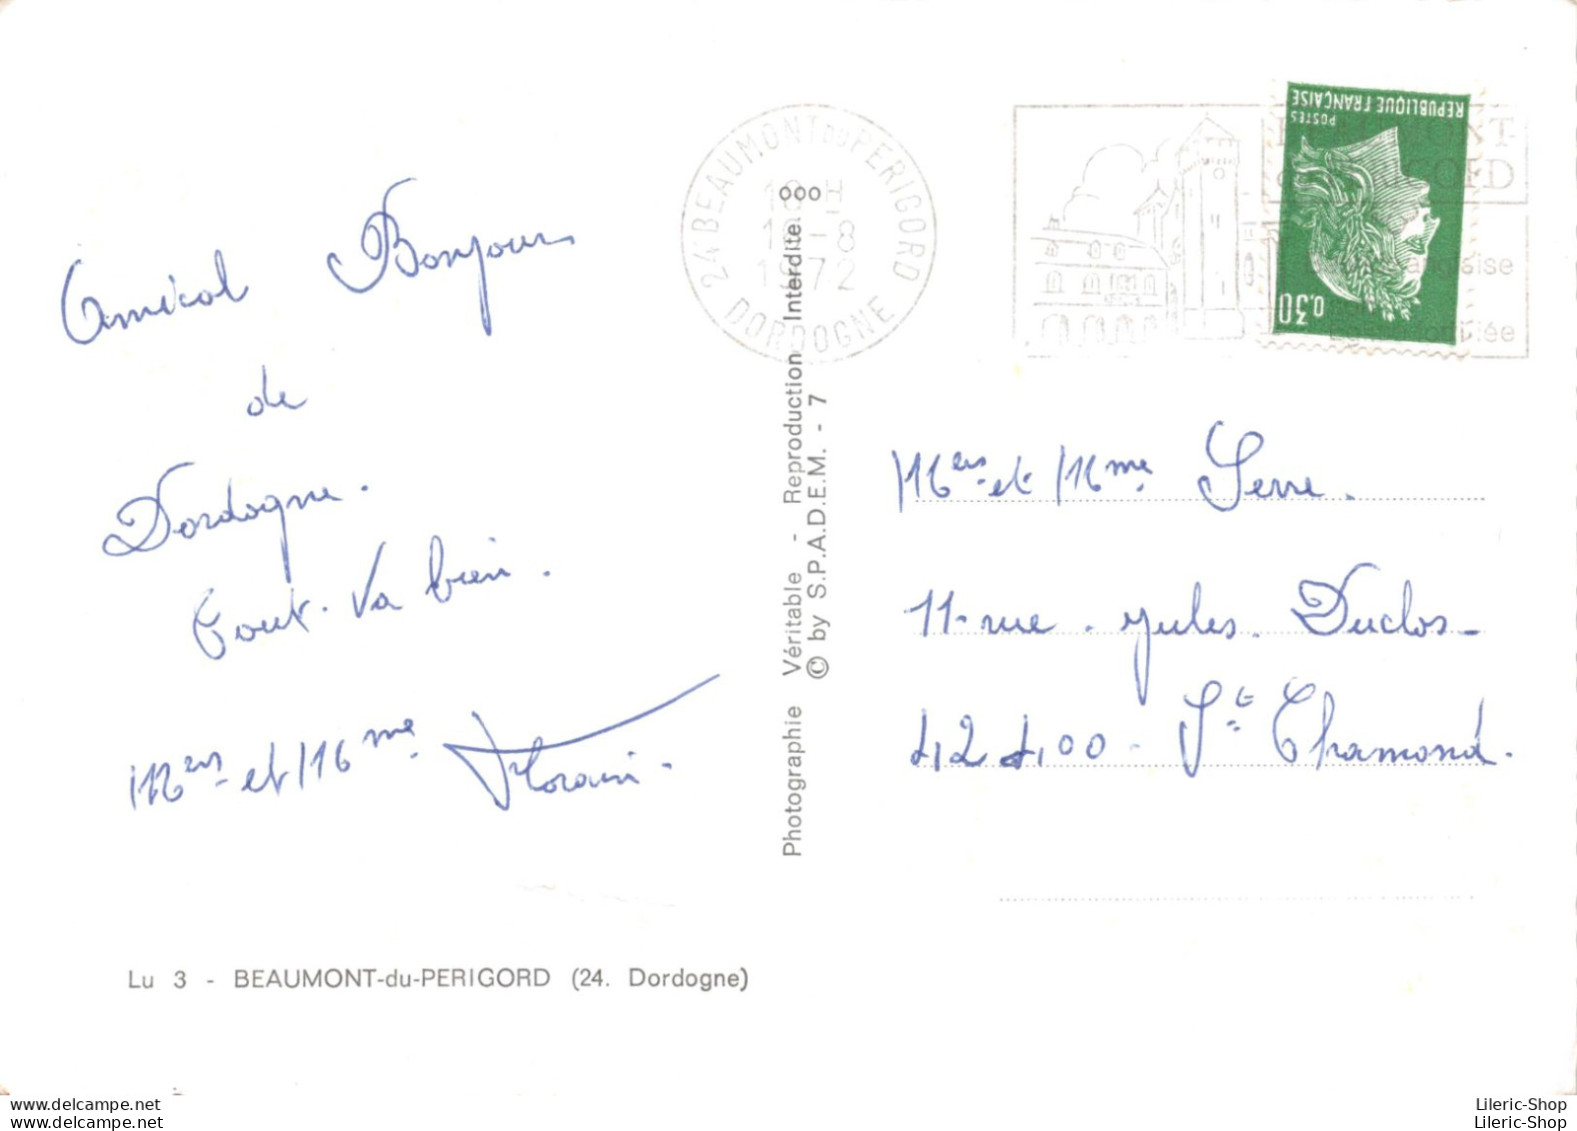 Amical Bonjour
de
Dordogne.
Tout. Va bien.
Mers et Mme Florain.
Lu 3 - BEAUMONT-du-PERIGORD (24. Dordogne)
Photographie Véritable - Reproduction Interdite
© by S.P.A.D.E.M. - 7
24 BEAUMONT DU PERIGORD
18 H
-8
1972
DORDOGNE
REPUBLIQUE FRANÇAISE
POSTES
0,30
Mers et Mme Serre.
11 - rue. Jules. Duclos -
42400 - St Chamond.
www.delcampe.net
www.delcampe.net
Lileric-Shop
Lileric-Shop